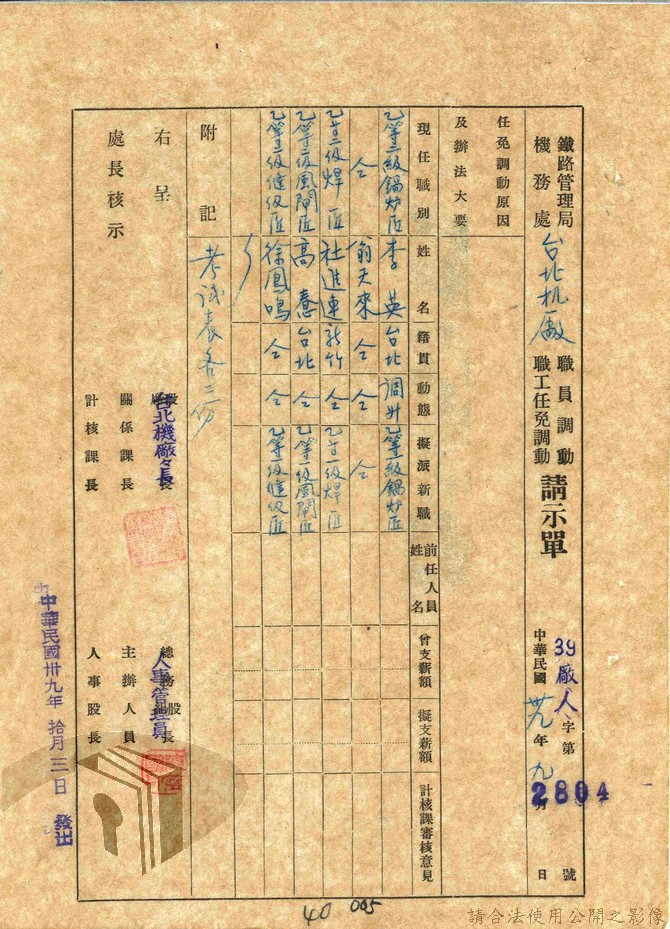 鐵路管理局
機務處
台北机廠
職員調動
職工任免調動
請示單
39廠人字第2804號
中華民國卅九年九月 日
任免調動原因
及辦法大要
現任職別
姓名
籍貫
動態
擬派新職
前任人員姓名
曾支薪額
擬支薪額
計核課審核意見
乙等二級鍋炉匠 李英 台北 調升 乙等一級鍋炉匠
仝 翁天來 仝 仝 仝
乙等二級焊匠 杜進連 新竹 仝 乙等一級焊匠
乙等二級風閘匠 高 台北 仝 乙等一級風閘匠
乙等二級縫紉匠 徐鳳鳴 仝 仝 乙等一級縫紉匠
附記
考試表各二份
右呈
處長核示
台北機廠々長
關係課長
計核課長
總務股長
人事管理員
主辦人員
人事股長
中華民國卅九年拾月三日發出
40 005
請合法使用公開之影像